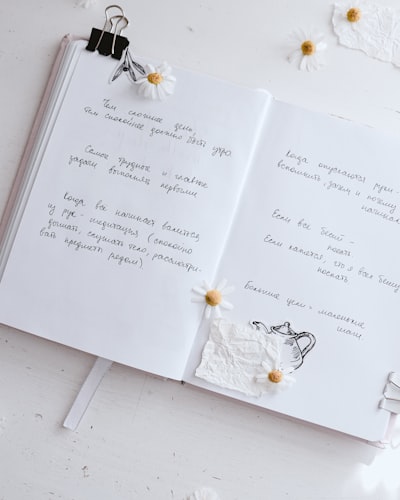 Чем сложнее день,
тем спокойнее должно быть утро
Самое трудное и главное
задачи выполнять первыми
Когда все начинает валится
из рук - медитация (спокойно
дышать, слушать тело, рассматри-
вать предметы рядом)
Когда опускаются руки -
вспомнить, зачем и почему
начинала
Если все бесит -
поесть
Если кажется, что я всех бешу
поспать
Большие цели = маленькие
шаги